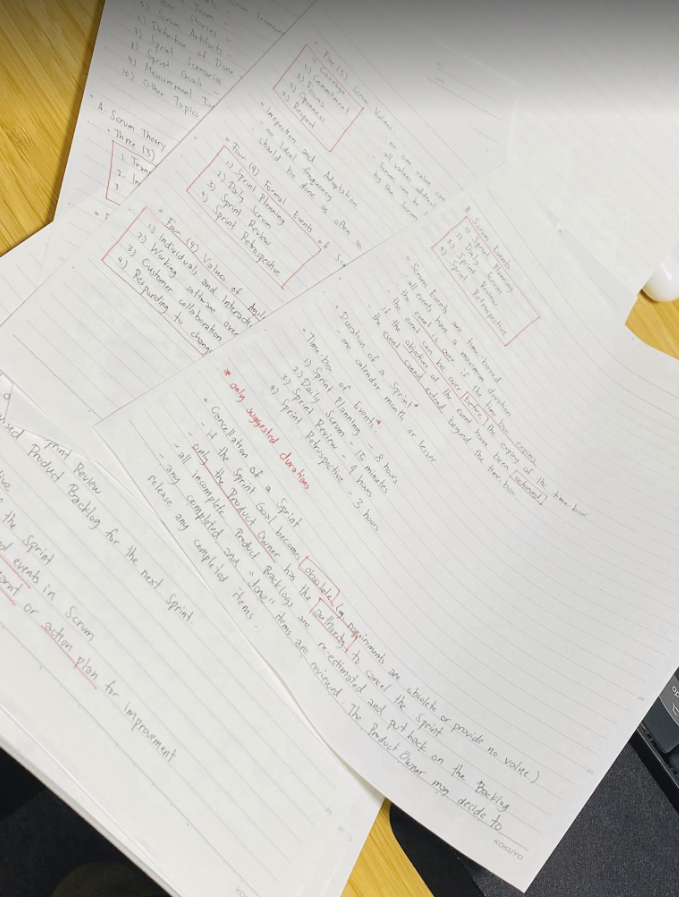 Stories -
Scrum Artifacts -
Definition of Done -
Sprint Scenarios
Sprint Goals -
Measurement
10) Other Topics
• A. Scrum Theory
• Three (3)
1. Tran
2. In
3.
• Five (5) Scrum Values
1) Courage
2) Commitment
3) Focus
4) Openness
5) Respect
- no one value can
- all values
by the Scrum
• Inspection and Adaptation
- no ideal frequency
- should be done as often as
• Four (4) Formal Events of S
1) Sprint Planning
2) Daily Scrum
3) Sprint Review
4) Sprint Retrospective
• Four (4) Values of Agil
1) Individuals and Interacti
2) Working software over
3) Customer collaboration
4) Responding to change
B. Scrum Events
1) Sprint Planning
2) Daily Scrum
3) Sprint Review
4) Sprint Retrospective
• Scrum Events are time-boxed
- all events have a maximum duration
- the event is over if the time-box expires
- the event can be over before the expiry of the time-box
if the objectives of the event have been achieved
- the event cannot extend beyond the time-box
• Duration of a Sprint*
- one calendar month or lesser
• Time-box of Events*
1) Sprint Planning - 8 hours
2) Daily Scrum - 15 minutes
3) Sprint Review - 4 hours
4) Sprint Retrospective - 3 hours
* only suggested durations
• Cancellation of a Sprint
- if the Sprint Goal becomes obsolete (requirements are obsolete or provide no value)
- only the Product Owner has the authority to cancel the Sprint
- all incomplete Product Backlogs are re-estimated and put back on the Backlog
- any completed and "done" items are reviewed. The Product Owner may decide to
release any completed items.
KOKUYO
print Review
sed Product Backlog for the next Sprint
the Sprint
events in Scrum
or action plan for improvement